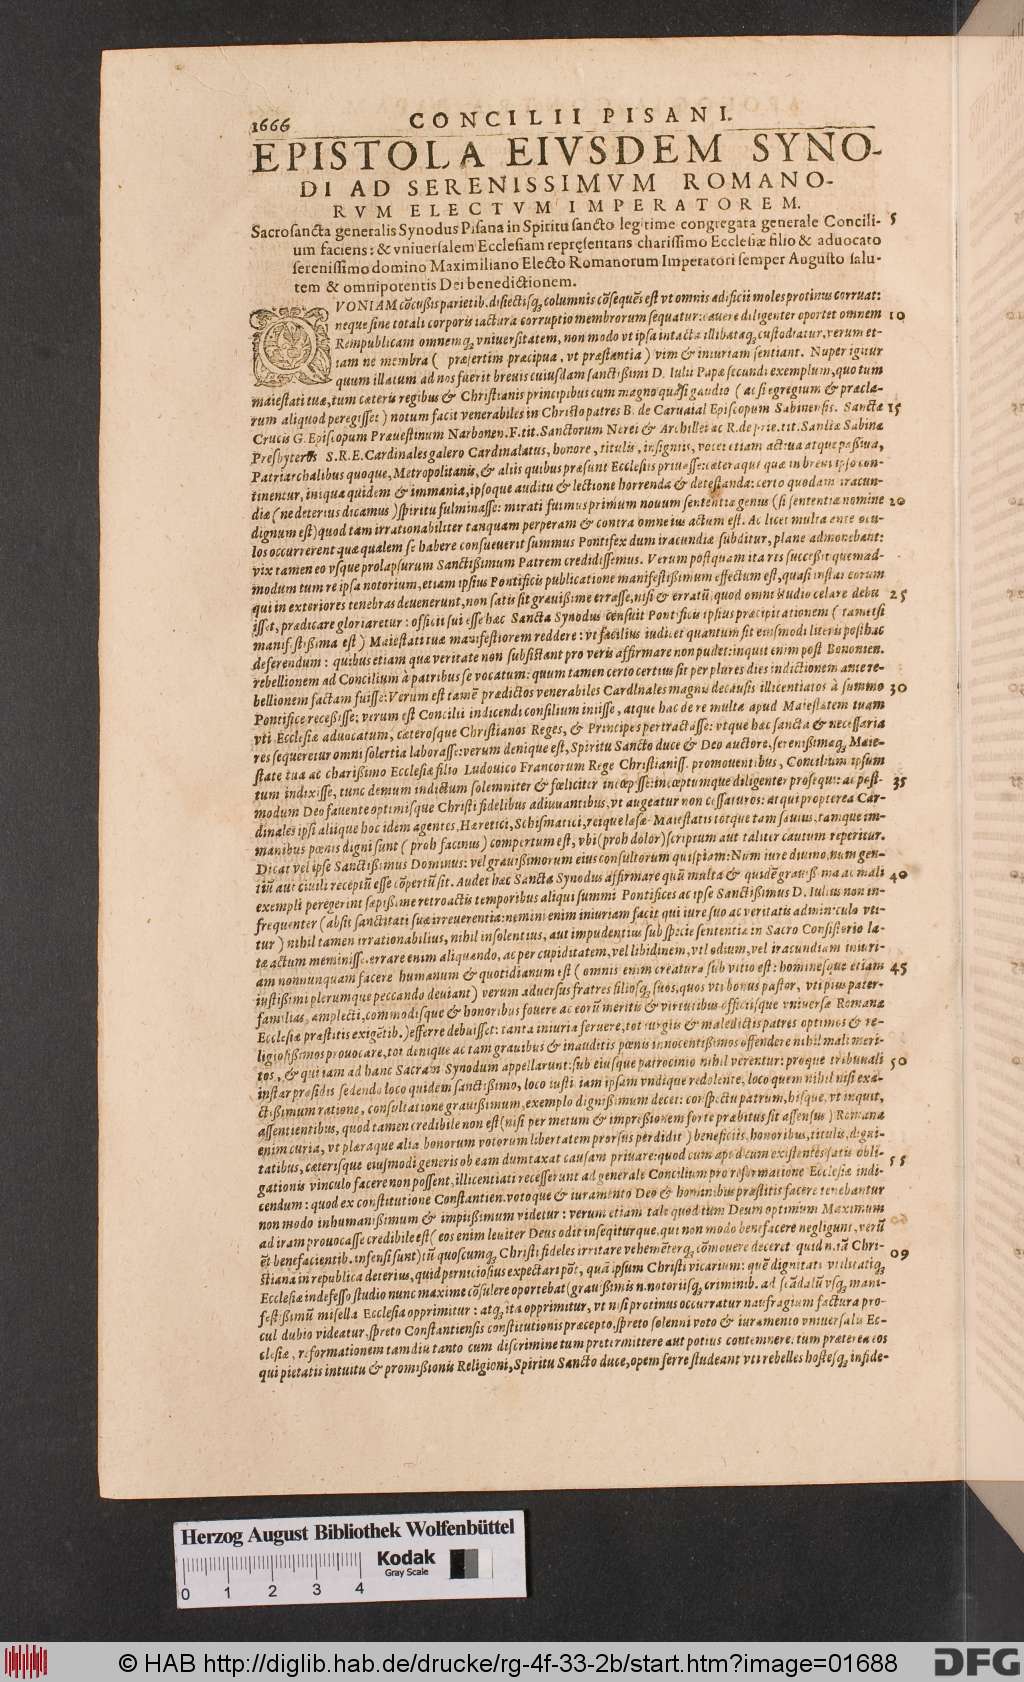 1666 CONCILII PISANI.
EPISTOLA EIVSDEM SYNO-
DI AD SERENISSIMVM ROMANO-
RVM ELECTVM IMPERATOREM.
Sacrosancta generalis Synodus Pisana in Spiritu sancto legitime congregata generale Concili- 5
um faciens: & vniuersalem Ecclesiam repręsentans charissimo Ecclesiæ filio & aduocato
serenissimo domino Maximiliano Electo Romanorum Imperatori semper Augusto salu-
tem & omnipotentis Dei benedictionem.
QVONIAM cõcußis parietib. disiectisq́; columnis cõsequẽs est vt omnis ædificii moles protinus corruat:
neque sine totali corporis iactura corruptio membrorum sequatur: cauere diligenter oportet omnem 10
Rempublicam omnemq́; vniuersitatem, non modo vt ipsa intacta illibataq́; custodiatur, verum et-
iam ne membra ( præsertim præcipua, vt præstantia ) vim & iniuriam sentiant. Nuper igitur
quum illatum ad nos fuerit breuis cuiusdam sanctißimi D. Iulii Papæ secundi exemplum, quo tum
maiestati tuæ, tum cæteris regibus & Christianis principibus cum magno quasi gaudio ( ac si egregium & præcla-
rum aliquod peregisset ) notum facit venerabiles in Christo patres B. de Caruaial Episcopum Sabinensis. Sanctæ 15
Crucis G. Episcopum Præuestinum Narbonen. F. tit. Sanctorum Nerei & Archillei ac R. de prie. tit. Sanctæ Sabinæ
Presbyteros S.R.E. Cardinales galero Cardinalatus, honore, titulis, insigniis, voce etiam actiua atque paßiua,
Patriarchalibus quoque, Metropolitanis, & aliis quibus præsunt Ecclesiis priuasse: cæteraque quæ in breui ipso con-
tinentur, iniqua quidem & immania, ipsoque auditu & lectione horrenda & detestanda: certo quodam iracun-
diæ ( ne deterius dicamus ) spiritu fulminasse: mirati fuimus primum nouum sententiæ genus ( si sententiæ nomine 20
dignum est) quod tam irrationabiliter tanquam perperam & contra omne ius actum est. Ac licet multa ante ocu-
los occurrerent quæ qualem se habere consueuerit summus Pontifex dum iracundiæ subditur, plane admonebant:
vix tamen eo vsque prolapsurum Sanctißimum Patrem credidissemus. Verum postquam ita res succeßit quemad-
modum tum re ipsa notorium, etiam ipsius Pontificis publicatione manifestißimum effectum est, quasi instar eorum
qui in exteriores tenebras deuenerunt, non satis sit grauißime errasse, nisi & erratũ, quod omni studio celare debu 25
isset, prædicare gloriaretur: officii sui esse hæc Sancta Synodus censuit Pontificis ipsius præcipitationem ( tametsi
manifestißima est ) Maiestati tuæ manifestiorem reddere: vt facilius iudicet quantum sit eiusmodi literis posthac
deferendum: quibus etiam quæ veritate non subsistant pro veris affirmare non pudet: inquit enim post Bononien.
rebellionem ad Concilium à patribus se vocatum: quum tamen certo certius sit per plures dies indictionem ante re-
bellionem factam fuisse: Verum est tamẽ prædictos venerabiles Cardinales magnis de causis illicentiatos à summo 30
Pontifice receßisse; verum est Concilii indicendi consilium iniisse, atque hac de re multa apud Maiestatem tuam
vti Ecclesiæ aduocatum, cæterosque Christianos Reges, & Principes pertractasse: vtque hæc sancta & necessaria
res sequeretur omni solertia laborasse: verum denique est, Spiritu Sancto duce & Deo auctore, serenißimaq́; Maie-
state tua ac charißimo Ecclesiæ filio Ludouico Francorum Rege Christianiss. promouentibus, Concilium ipsum
tum indixisse, tunc demum indictum solemniter & fœliciter incœpisse: incœptumque diligenter prosequi: ac post- 35
modum Deo fauente optimisque Christi fidelibus adiuuantibus, vt augeatur non cessaturos: at qui propterea Car-
dinales ipsi aliique hoc idem agentes, Hæretici, Schismatici, reique læsæ Maiestatis totque tam sæuius, tamque im-
manibus pœnis digni sunt ( proh facinus ) compertum est, vbi (proh dolor) scriptum aut taliter cautum reperitur.
Dicat vel ipse Sanctißimus Dominus: vel grauißimorum eius consultorum quispiam: Num iure diuino, num gen-
tiũ aut ciuili receptũ esse cõpertũ sit. Audet hæc Sancta Synodus affirmare quũ multa & quidẽ grauißima ac mali 40
exempli peregerint sæpißime retroactis temporibus aliqui summi Pontifices ac ipse Sanctißimus D. Iulius non in-
frequenter ( absit sanctitati suæ irreuerentia: nemini enim iniuriam facit qui iure suo ac veritatis adminiculo vti-
tur ) nihil tamen irrationabilius, nihil insolentius, aut impudentius sub specie sententiæ in Sacro Consistorio la-
tæ actum meminisse: errare enim aliquando, ac per cupiditatem, vel libidinem, vel odium, vel iracundiam iniuri-
am nonnunquam facere humanum & quotidianum est ( omnis enim creatura sub vitio est: hominesque etiam 45
iustißimi plerumque peccando deuiant ) verum aduersus fratres filiosq́; suos, quos vti bonus pastor, vti pius pater-
familias, amplecti, commodisque & honoribus fouere ac eorũ meritis & virtutibus officiisque vniuersæ Romanæ
Ecclesiæ præstitis exigẽtib. ) efferre debuisset: tanta iniuria feruere, tot iurgiis & maledictis patres optimos & re-
ligiosißimos prouocare, tot denique ac tam grauibus & inauditis pœnis innocentißimos offendere nihil mali meri-
tos, & qui iam ad hanc Sacram Synodum appellarunt: sub eiusque patrocinio nihil verentur: proque tribunali 50
instar præsidis sedendo loco quidem sanctißimo, loco iusti iam ipsam vndique redolente, loco quem nihil nisi exa-
ctißimum ratione, consultatione grauißimum, exemplo dignißimum decet: conspectu patrum, hisque, vt inquit,
assentientibus, quod tamen credibile non est (nisi per metum & impreßionem forte præbitus sit assensus ) Romana
enim curia, vt pleraque alia bonorum votorum libertatem prorsus perdidit ) beneficiis, honoribus, titulis, digni-
tatibus, cæterisque eiusmodi generis ob eam dumtaxat causam priuare: quod cum apodecum existentes satis obli- 55
gationis vinculo facere non possent, illicentiati recesserunt ad generale Concilium pro reformatione Ecclesiæ indi-
cendum: quod ex constitutione Constantien. votoque & iuramento Deo & hominibus præstitis facere tenebantur
non modo inhumanißimum & impiißimum videtur: verum etiam tale quod tum Deum optimum Maximum
ad iram prouocasse credibile est ( eos enim leuiter Deus odit insequiturque, qui non modo benefacere negligunt, verũ
ẽt benefacientib. infensi sunt) tũ quoscumq́; Christi fideles irritare vehemẽterq́; cõmouere deceret quid n. in Chri- 60
stiana in republica deterius, quid perniciosius expectari põt, quã ipsum Christi vicarium: quẽ dignitati vtilitatiq́;
Ecclesiæ indefesso studio nunc maxime cõsulere oportebat (grauißimis n. notoriisq́; criminib. ad scãdalũ vsq́; mani-
festißimũ misella Ecclesia opprimitur: atq́; ita opprimitur, vt nisi protinus occurratur naufragium factura pro-
cul dubio videatur, spreto Constantiensis constitutionis præcepto, spreto solenni voto & iuramento vniuersalis Ec-
clesiæ, reformationem tamdiu tanto cum discrimine tum pretermittere aut potius contemnere: tum præterea eos
qui pietatis intuitu & promißionis Religioni, Spiritu Sancto duce, opem ferre studeant vti rebelles hostesq́; infide-
Herzog August Bibliothek Wolfenbüttel
Kodak
Gray Scale
0 1 2 3 4
© HAB http://diglib.hab.de/drucke/rg-4f-33-2b/start.htm?image=01688
DFG